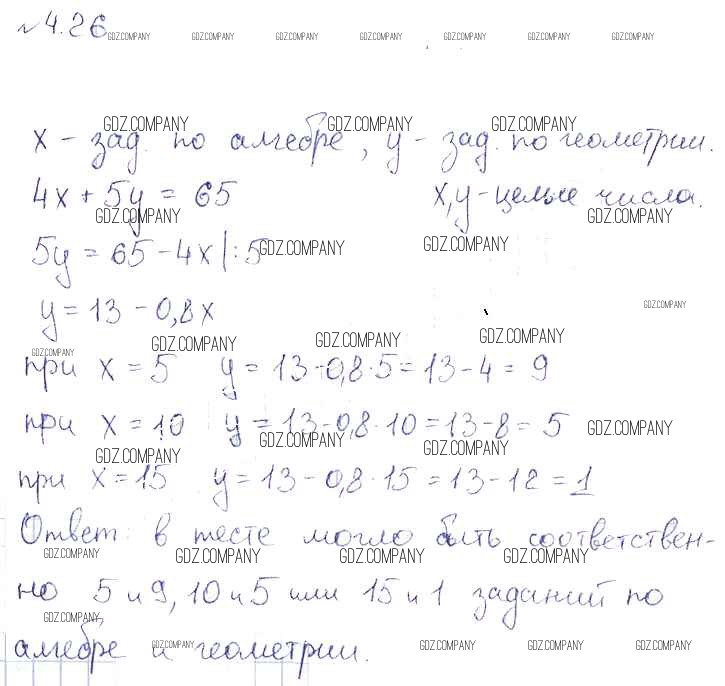 №4.26
GDZ.COMPANY GDZ.COMPANY GDZ.COMPANY GDZ.COMPANY GDZ.COMPANY GDZ.COMPANY GDZ.COMPANY
GDZ.COMPANY GDZ.COMPANY GDZ.COMPANY
x - зад. по алгебре, y - зад. по геометрии.
4x + 5y = 65 x, y - целые числа.
GDZ.COMPANY GDZ.COMPANY
5y = 65 - 4x |:5
GDZ.COMPANY GDZ.COMPANY
y = 13 - 0,8x
GDZ.COMPANY
GDZ.COMPANY GDZ.COMPANY GDZ.COMPANY GDZ.COMPANY
при x = 5 y = 13 - 0,8·5 = 13 - 4 = 9
при x = 10 y = 13 - 0,8·10 = 13 - 8 = 5
GDZ.COMPANY GDZ.COMPANY
GDZ.COMPANY GDZ.COMPANY
при x = 15 y = 13 - 0,8·15 = 13 - 12 = 1
Ответ: в тесте могло быть соответствен-
GDZ.COMPANY GDZ.COMPANY GDZ.COMPANY GDZ.COMPANY
но 5 и 9, 10 и 5 или 15 и 1 заданий по
GDZ.COMPANY
алгебре и геометрии.
GDZ.COMPANY GDZ.COMPANY GDZ.COMPANY GDZ.COMPANY